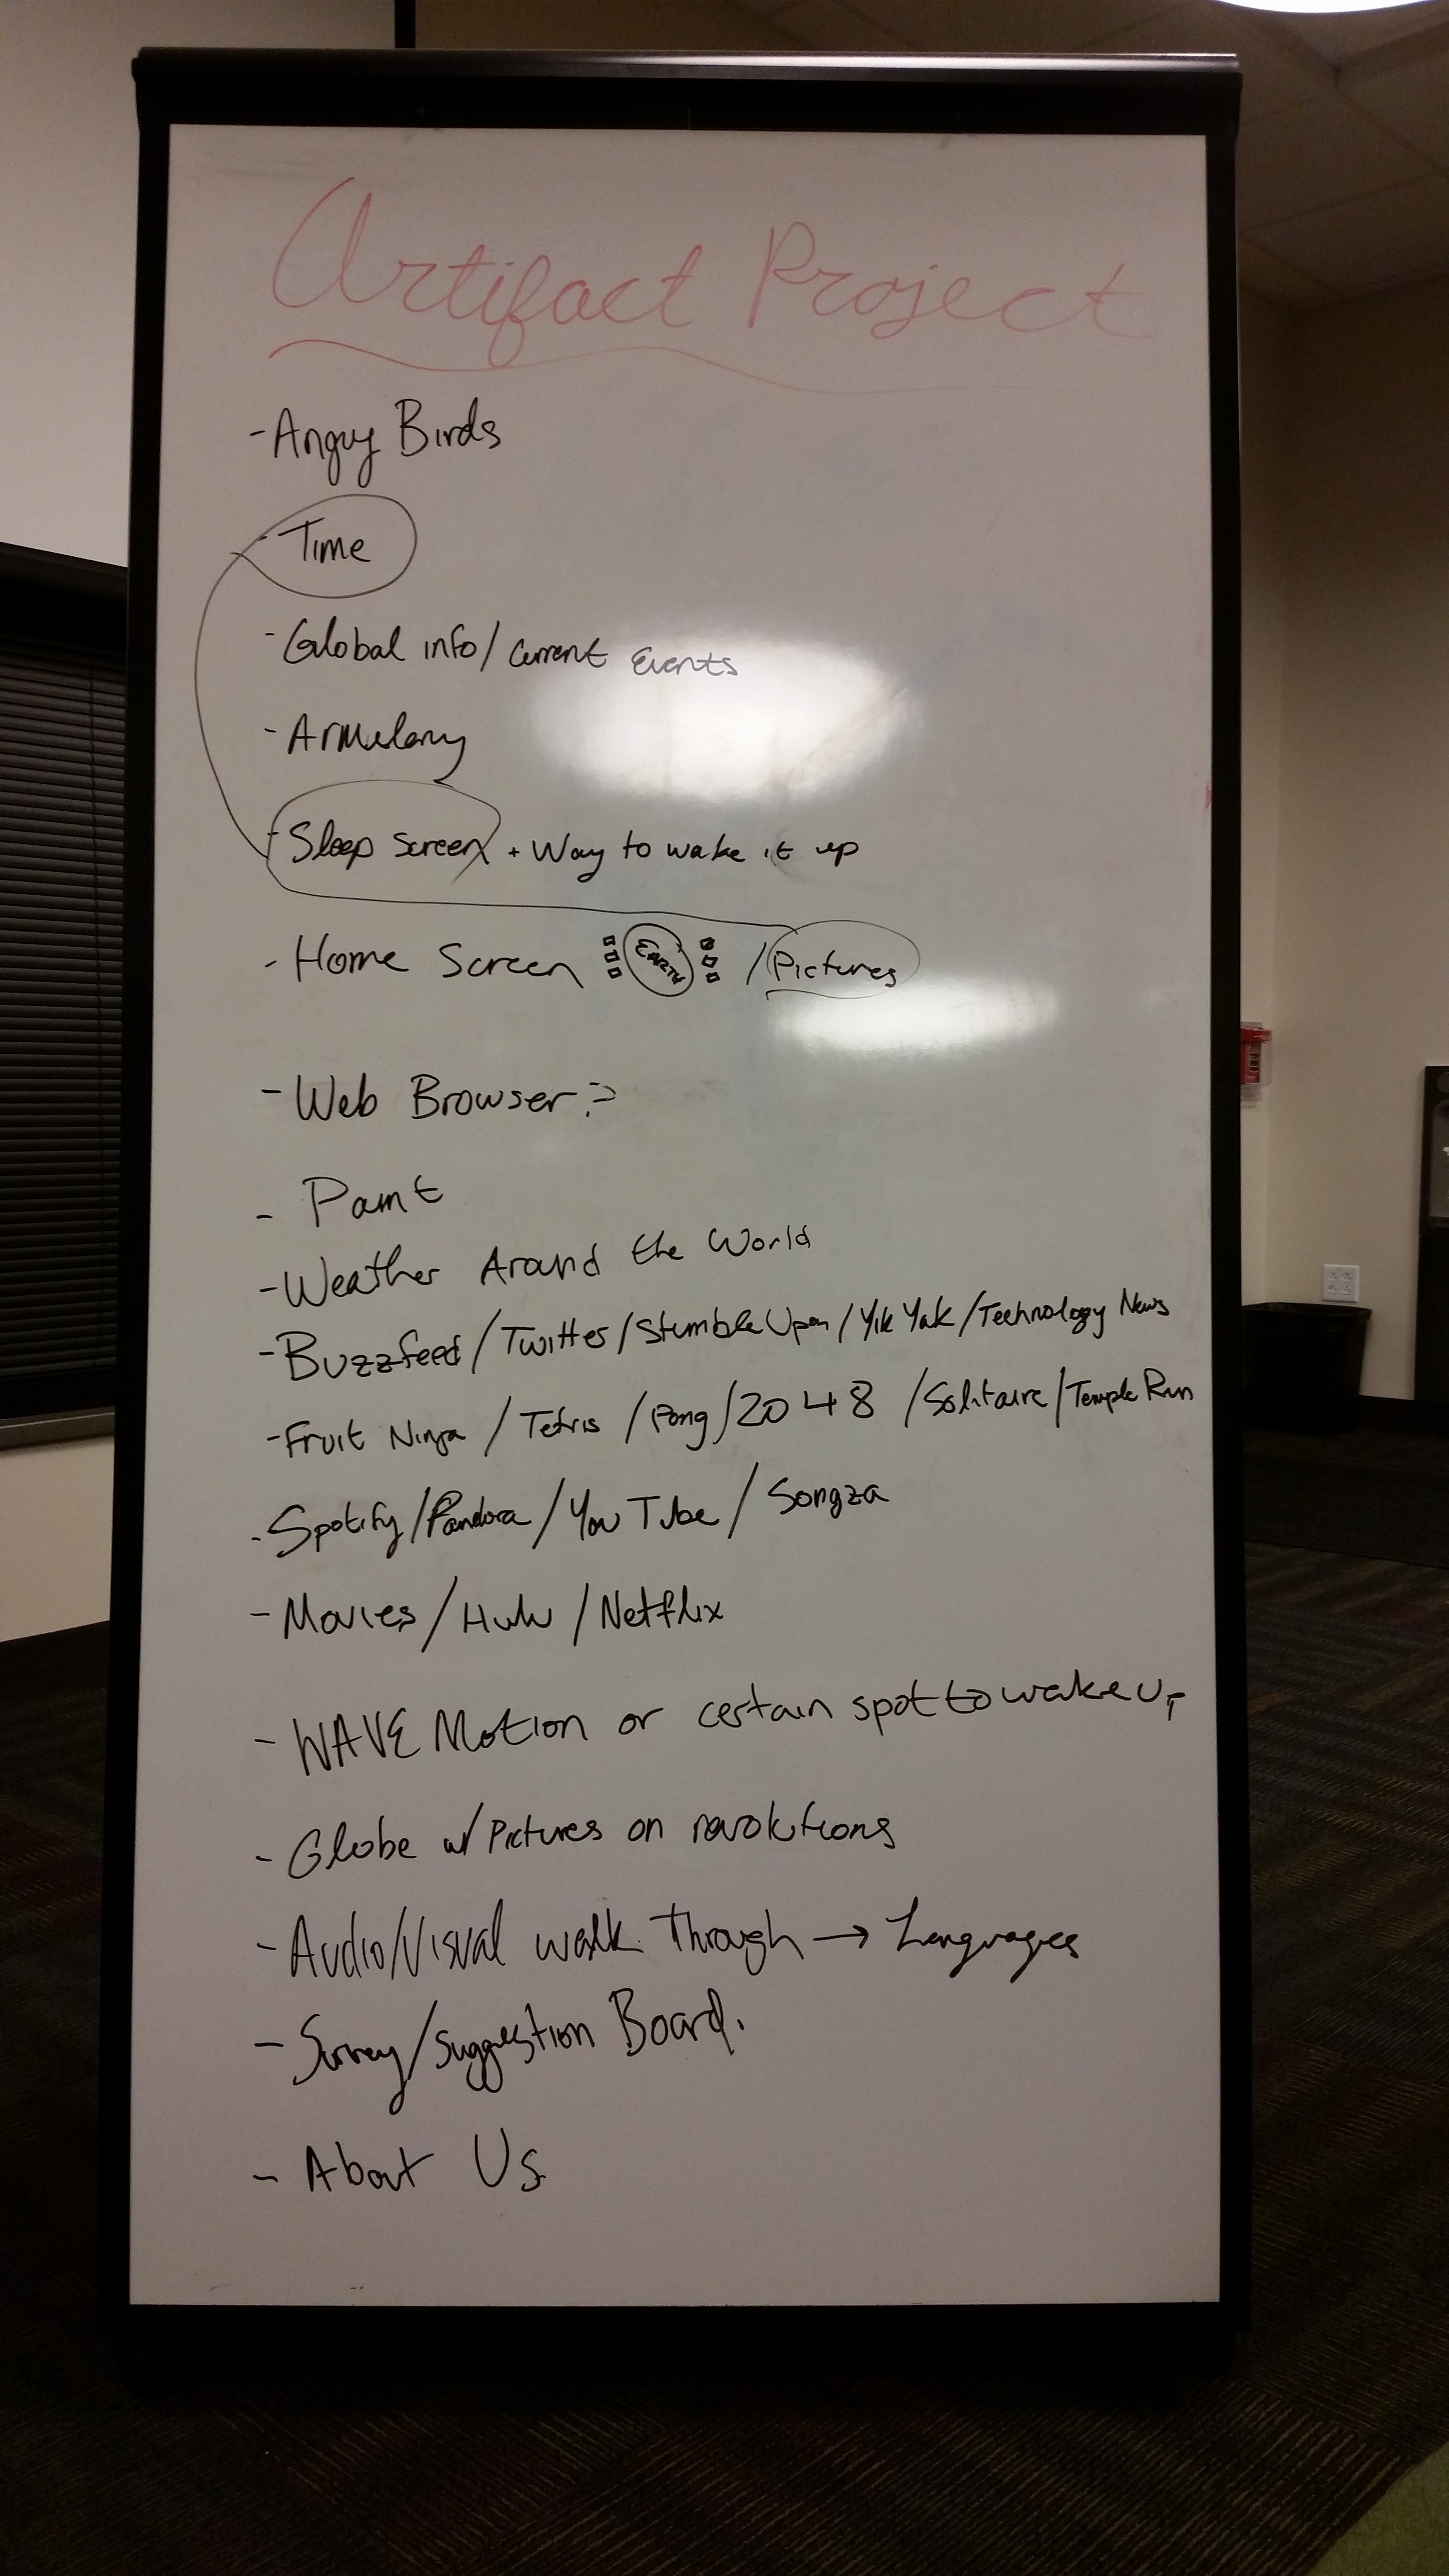 Artifact Project
- Angry Birds
- Time
- Global info/current events
- Armilary
- Sleep screen + Way to wake it up
- Home Screen EARTH / Pictures
- Web Browser :-
- Paint
- Weather Around the World
- Buzzfeed/Twitter/StumbleUpon/Yik Yak/Technology News
- Fruit Ninja / Tetris / Pong / 2048 / Solitaire / Temple Run
- Spotify/Pandora/YouTube/Songza
- Movies/Hulu/Netflix
- WAVE Motion or certain spot to wake up
- Globe w/ Pictures on revolutions
- Audio/Visual walk through → Languages
- Survey/suggestion Board.
- About Us